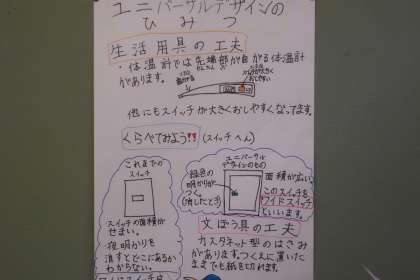 ユニバーサルデザインの
ひみつ
生活用具の工夫
・体温計では先端部が曲がる体温計
があります。
他にもスイッチが大きくおしやすくなってます。
くらべてみよう!!(スイッチへん)
これまでの
スイッチ
スイッチの面積が
せまい。
夜明かりを
消すとどこにあるか
わからない。
ユニバーサル
デザインのもの
緑色の
明かりが
つく。
(消したとき)
面積が広い
このスイッチを
ワイドスイッチ
といいます。
文ぼう具の工夫
カスタネット型のはさみ
があります。つくえに置いた
ままでも紙を切れます。